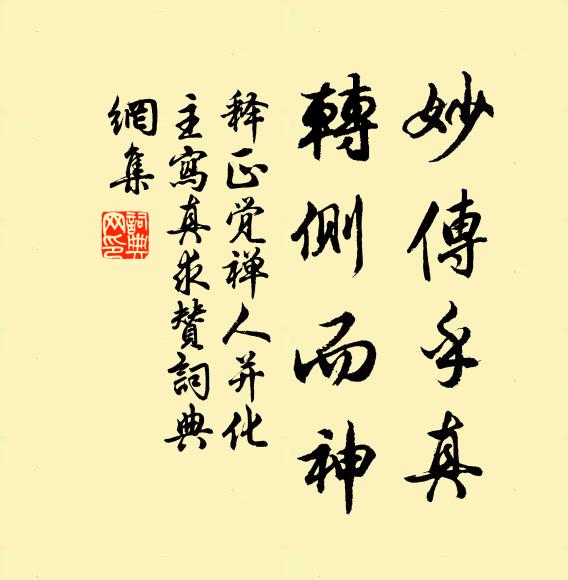 妙傳乎真
轉側而神
释正觉禅人并化
主寫真求贊詞典
網集
詞典
网印